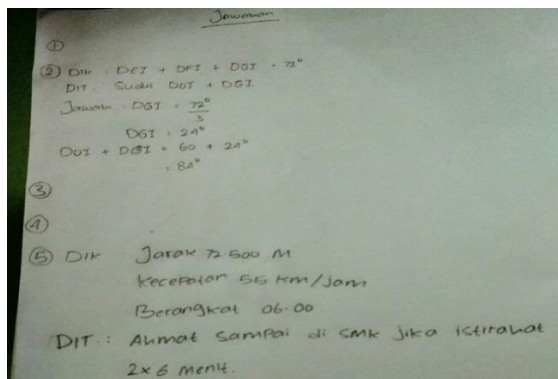 Jawaban
①
② Dik : DEI + DFI + DGI = 72°
DIT : Sudut DOI + DGI
Jawab : DGI = 72°
3
DGI = 24°
DOI + DGI = 60 + 24°
= 84°
③
④
⑤ DIK Jarak 72 500 M
Kecepatan 55 km/jam
Berangkat 06.00
DIT.: Ahmat sampai di SMK jika istirahat
2x6 menit.